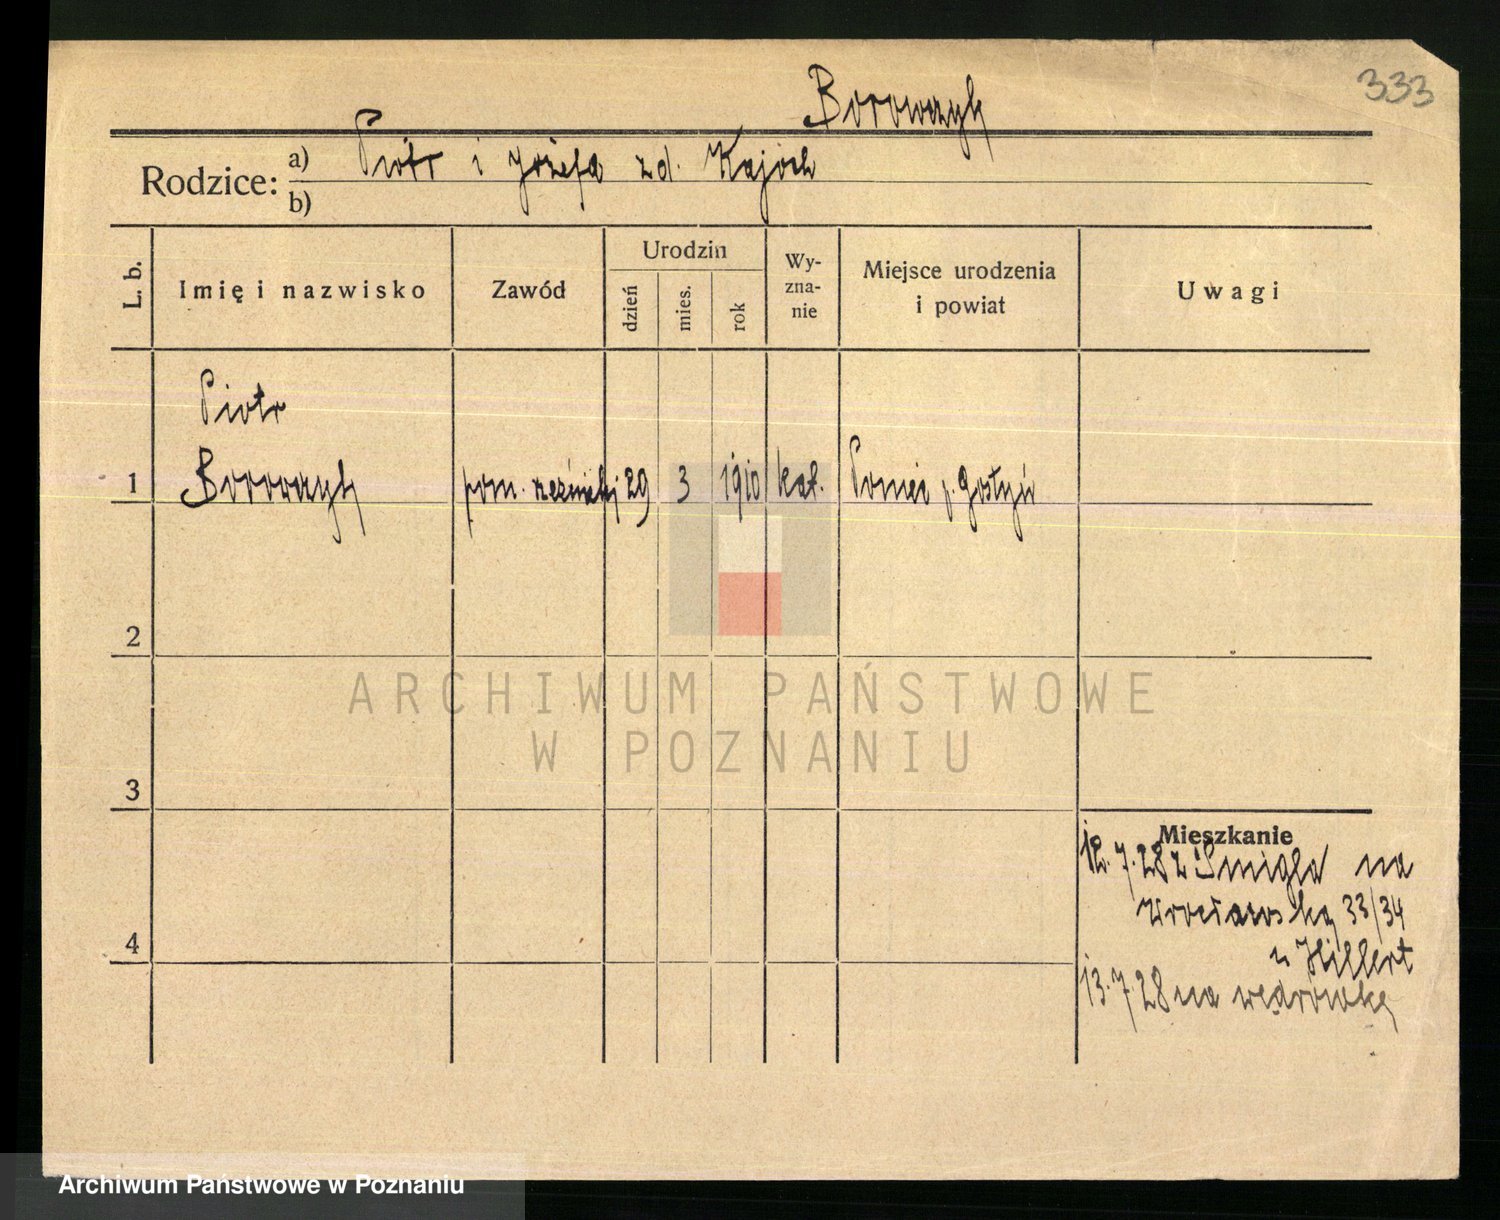 333
Borowczyk
Rodzice: a) Piotr i Józefa zd. Kajoch
b)
L. b. Imię i nazwisko Zawód Urodzin dzień mies. rok Wy-zna-nie Miejsce urodzenia i powiat Uwagi
Piotr
1 Borowczyk pom. rzeźnicki 29 3 1910 kat. p. Gostyń
2
3
4
Mieszkanie
12.7.28 z Śmigla na
Wrocławską 33/34
u Hillert
13.7.28 na wędrówkę
ARCHIWUM PAŃSTWOWE
W POZNANIU
Archiwum Państwowe w Poznaniu